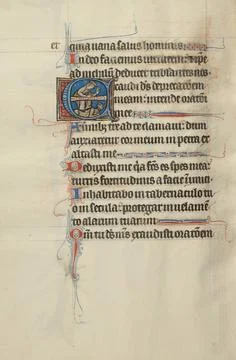 et quia uana salus hominis
In deo faciemus uirtutem: et ipse
ad nichilum deducet tribulantes nos.
Exaudi ds deprecacōem
meam: intende oratōni
mee
A finibus terre ad te clamaui: dum
anxiaretur cor meum in petra ex
altasti me
Deduxisti me q̄a fc̄s es spes mea:
turris fortitudinis a facie inimici.
Inhabitabo in tabernaculo tu
o in secula: protegar in uelamē
to alarum tuarum
Qm̄ tu ds ms exaudisti oratōem